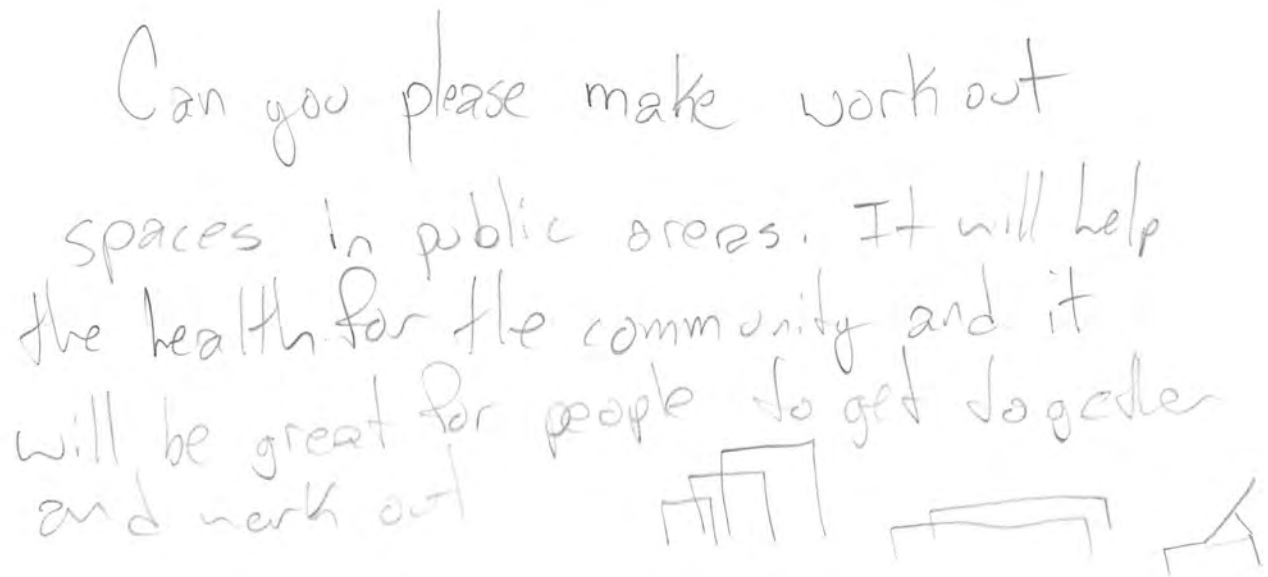 Can you please make work out
spaces in public areas. It will help
the health for the community and it
will be great for people to get together
and work out